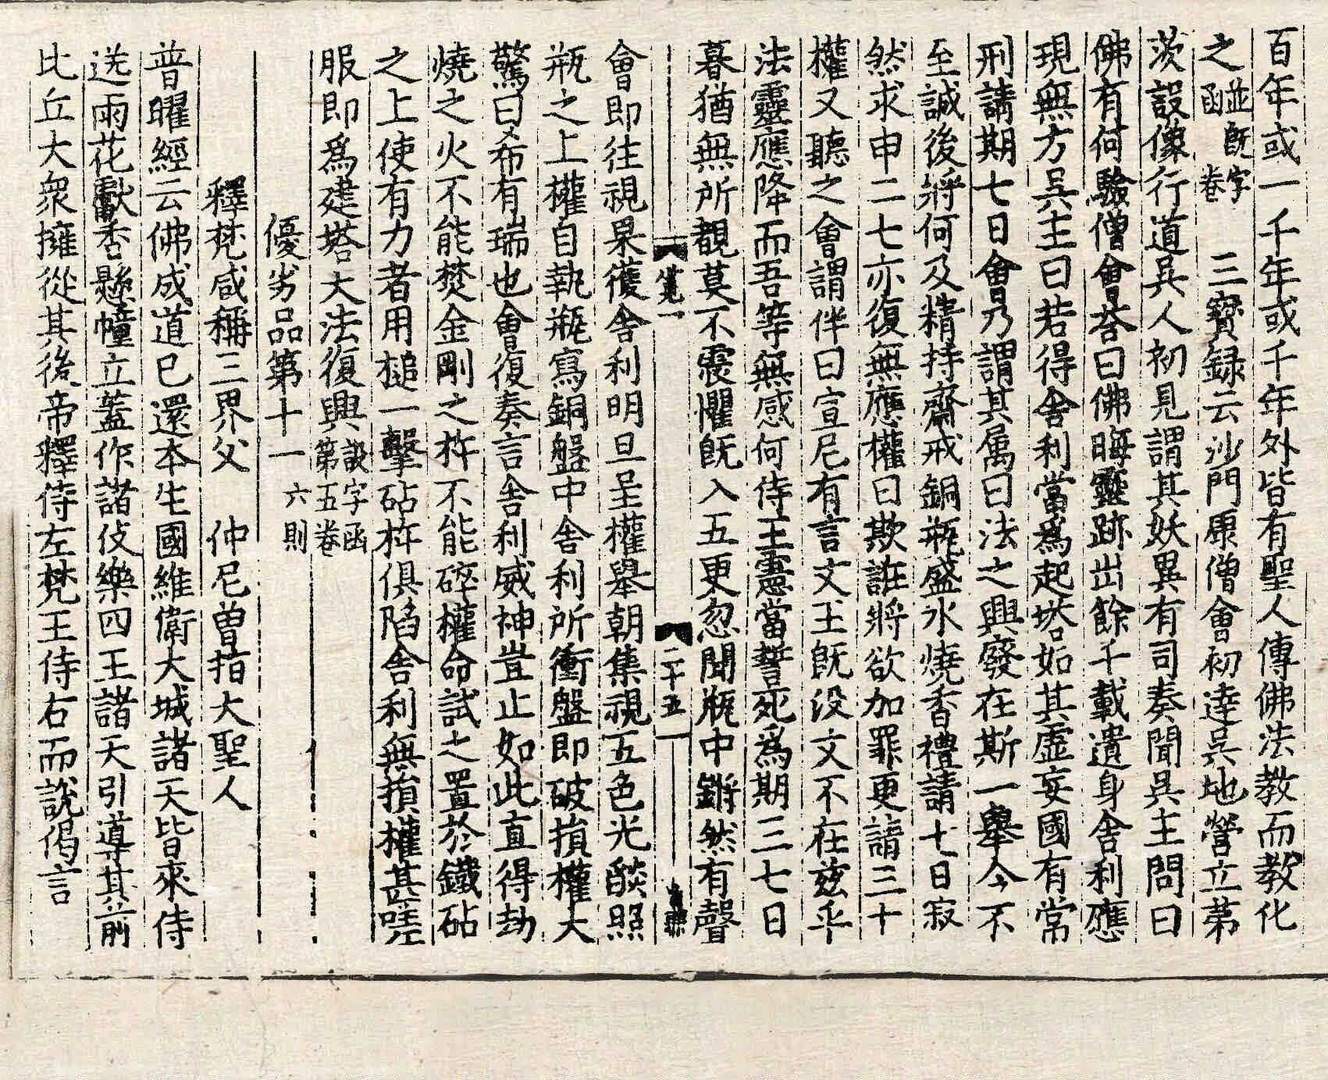 百年或一千年或千年外皆有聖人傳佛法教而教化
之並旣字函卷 三寶録云沙門康僧會初逹吳地營立茅
茨設像行道吳人初見謂其妖異有司奏聞吳主問曰
佛有何驗僧會荅曰佛晦靈跡出餘千載遺身舍利應
現無方吳主曰若得舍利當爲起塔如其虛妄國有常
刑請期七日會乃謂其属曰法之興廢在斯一舉今不
至誠後將何及精持齋戒銅瓶盛水燒香禮請七日寂
然求申二七亦復無應權曰欺誑將欲加罪更請三十
權又聽之會謂伴曰宣尼有言文王旣没文不在茲乎
法靈應降而吾等無感何待王憲當誓死爲期三七日
暮猶無所覩莫不震懼旣入五更忽聞瓶中鏘然有聲
二十五
會即往視果獲舍利明旦呈權舉朝集視五色光燄照
瓶之上權自執瓶寫銅盤中舍利所衝盤即破損權大
驚曰希有瑞也會復奏言舍利威神豈止如此直得劫
燒之火不能焚金剛之杵不能碎權命試之置於鐵砧
之上使有力者用槌一擊砧杵俱陷舍利無損權甚嗟
服即爲建塔大法復興設字函第五卷
優劣品第十一 六則
釋梵咸稱三界父 仲尼曽指大聖人
普曜經云佛成道已還本生國維衛大城諸天皆來侍
送雨花獻香懸幢立蓋作諸伎樂四王諸天引導其前
比丘大衆擁從其後帝釋侍左梵王侍右而說偈言